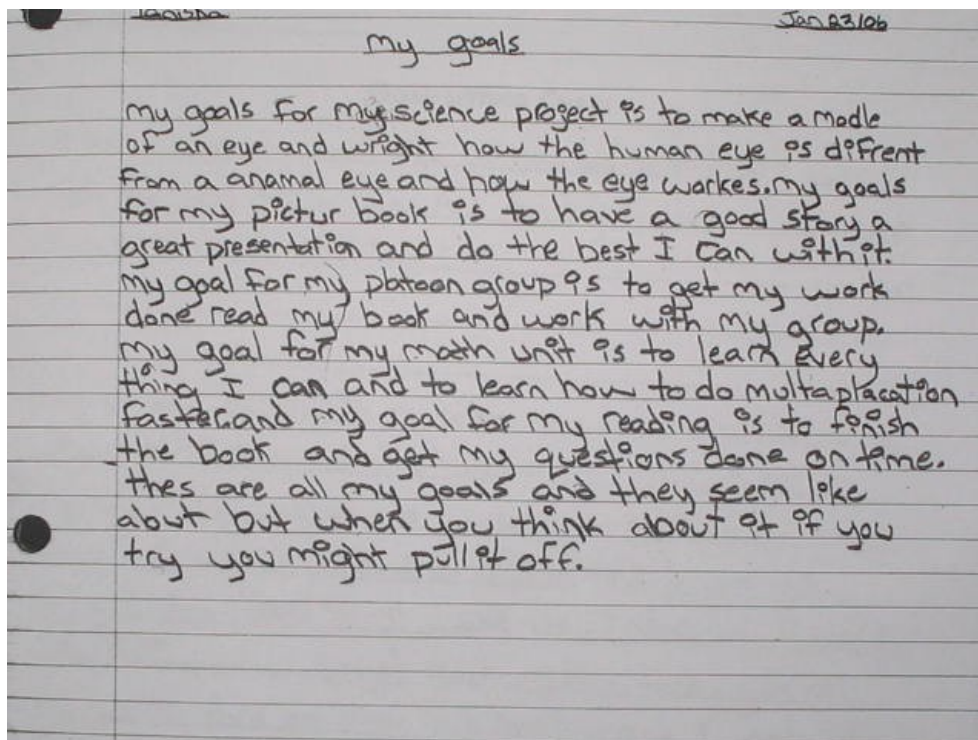 Tanisha
Jan 23/06
My goals
my goals for my science project is to make a modle
of an eye and wright how the human eye is difrent
from a anamal eye and how the eye workes. my goals
for my pictur book is to have a good story a
great presentation and do the best I can with it.
my goal for my platoon group is to get my work
done read my book and work with my group.
my goal for my math unit is to learn every
thing I can and to learn how to do multaplacation
faster. and my goal for my reading is to finish
the book and get my questions done on time.
thes are all my goals and they seem like
abut but when you think about it if you
try you might pull it off.